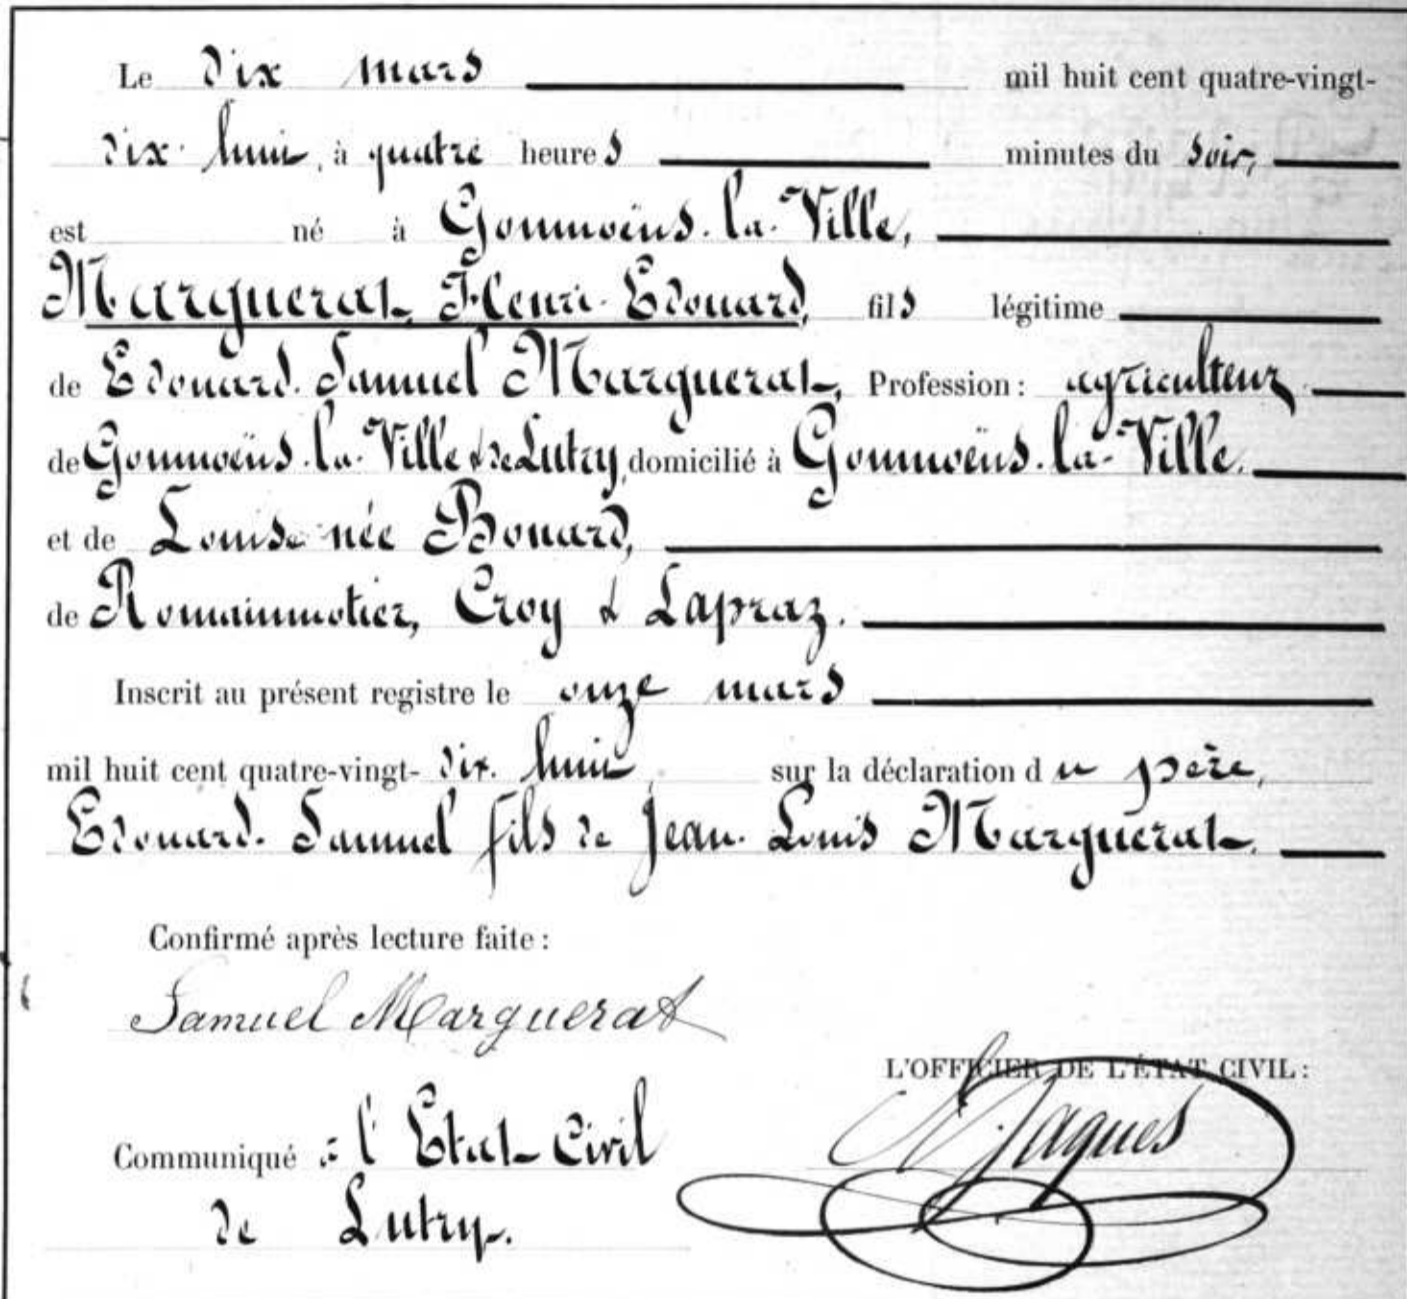 Le dix mars mil huit cent quatre-vingt-
dix-huit, à quatre heures minutes du soir,
est né à Goumoëns-la-Ville,
Marguerat, Henri-Edouard, fils légitime
de Edouard-Samuel Marguerat, Profession: agriculteur
de Goumoëns-la-Ville & de Lutry, domicilié à Goumoëns-la-Ville.
et de Louise née Bonard,
de Romainmotier, Croy & Lapraz.
Inscrit au présent registre le onze mars
mil huit cent quatre-vingt-dix-huit, sur la déclaration du père,
Edouard-Samuel fils de Jean-Louis Marguerat.
Confirmé après lecture faite:
Samuel Marguerat
L'OFFICIER DE L'ÉTAT CIVIL:
Jaques
Communiqué à l'Etat-Civil
de Lutry.